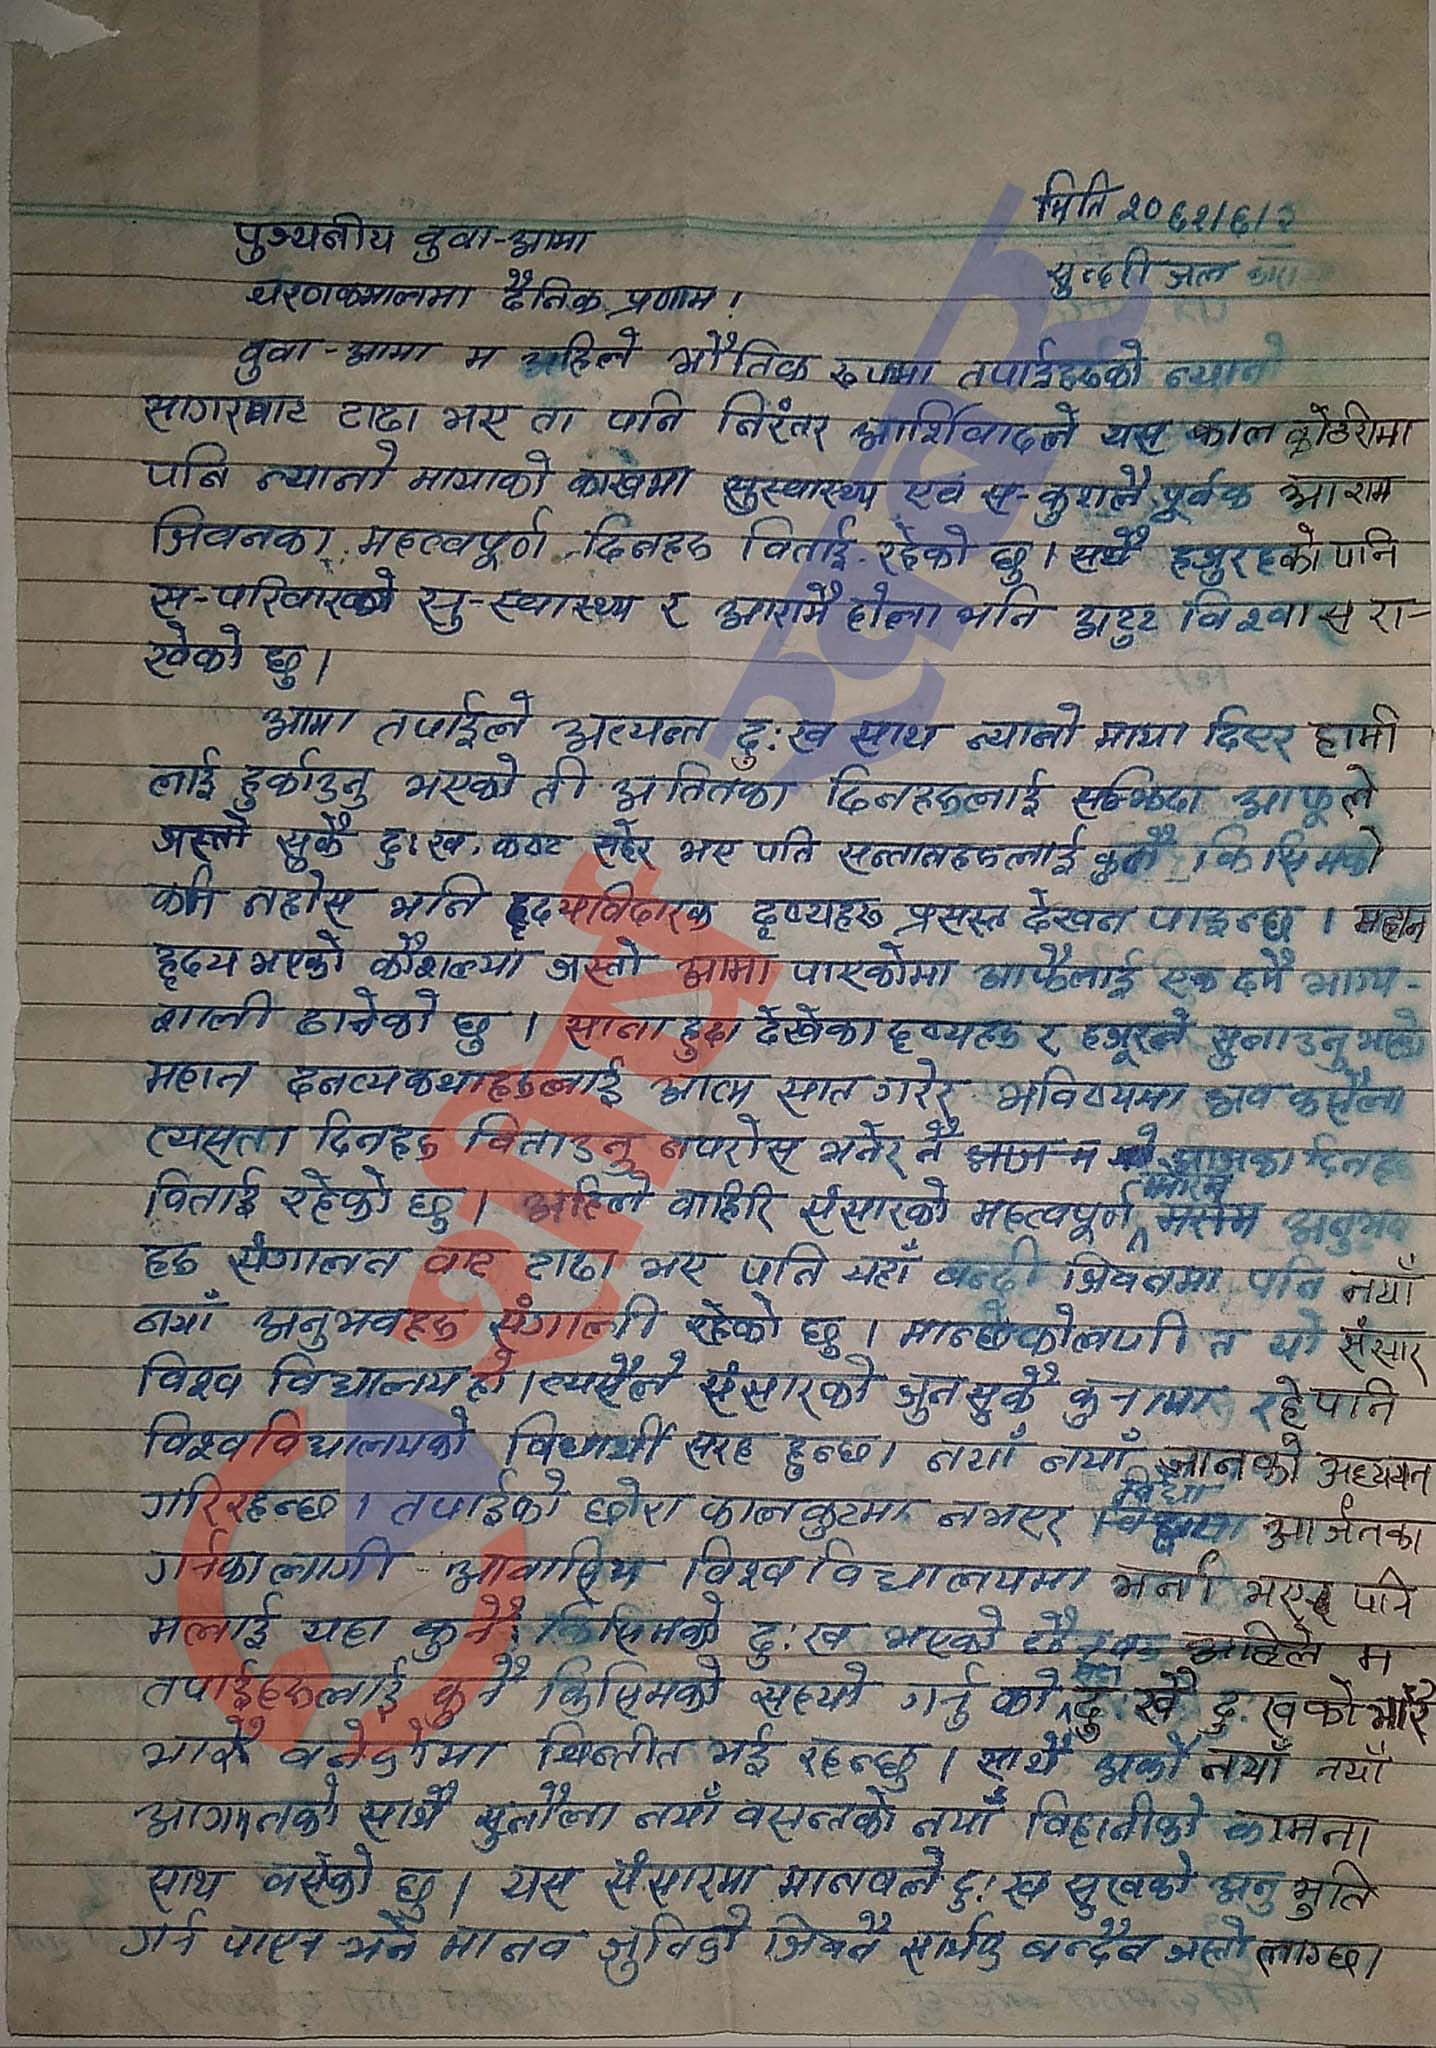 मिति २०६१/६/२
पुज्यनीय वुवा-आमा
सुन्दरी जल
चरणकमालमा दैनिक प्रणाम !
वुवा-आमा म अहिले भौतिक रुपमा तपाईहरुको न्यानो
सागरबाट टाढा भए ता पनि निरंतर आर्शिवादले यस काल कोठरीमा
पनि न्यानो मायाको काखमा सुस्वास्थ्य एवं स-कुशलै पूर्वक आराम
जिवनका महत्वपूर्ण दिनहरु विताई रहेको छु। साथै हजुरहको पनि
स-परिवारको सु-स्वास्थ्य र आरामै होला भनि अटुट विश्वास रा-
खेको छु।
आमा तपाईले अत्यन्त दु:ख साथ न्यानो माया दिएर हामी
लाई हुर्काउनु भएको ती अतितका दिनहरुलाई सम्झिदा आफूले
जस्तो सुकै दु:ख, कष्ट सहेर भए पनि सन्तानहरुलाई कुनै किसिमको
कमि नहोस भनि हृदयविदारक दृष्यहरु प्रसस्त देखन पाइन्छ । महान
हृदय भएको कौशल्या जस्तो आमा पाएकोमा आफैलाई एक दमै भाग्य-
शाली ठानेको छु । साना हुदा देखेका दृष्यहरु र हजूरले सुनाउनु भएको
महान दन्त्यकथाहरुलाई आत्म सात गरेर भविष्यमा अव कसैला
त्यसता दिनहरु विताउनु नपरोस भनेर नै आज म आजका दिनहरु
विताई रहेको छु। अहिले वाहिरि संसारको महत्वपूर्ण अनुभव
हरु संगालन वाट टाढा भए पनि यहाँ बन्दी जिवनमा पनि नयाँ
नयाँ अनुभवहरु संगाली रहेको छु । मान्छेकोलागी त यो संसार
विश्व विद्यालय हो। त्यसैले संसारको जुनसुकै कुनामा रहे पनि
विश्वविद्यालयको विद्यार्थी सरह हुन्छ। नयाँ नयाँ ज्ञानको अध्ययन
गरिरहन्छ । तपाईको छोरा कालकुटमा नभएर विद्या आर्जनका
गर्नकालागी आवासिय विश्वविद्यालयमा भर्ना भएर पनि
मलाई यहा कुनै किसिमको दु:ख भएको छैन वरु अहिले म
तपाईहरुलाई कुनै किसिमको सहयो गर्नु को दु:खै दु:खको भारै
भारी वनेकोमा चिन्तीत भई रहन्छु । साथै अर्को नयाँ नयाँ
आगमनको साथै सुतौला नयाँ वसन्तको नयाँ विहानीको कामना
साथ वसेको छु । यस संसारमा मानवले दु:ख सुखको अनुभुति
गर्न पाएन भने मानव जुनिको जिवनै सार्थक बन्दैन जस्तो लाग्छ।